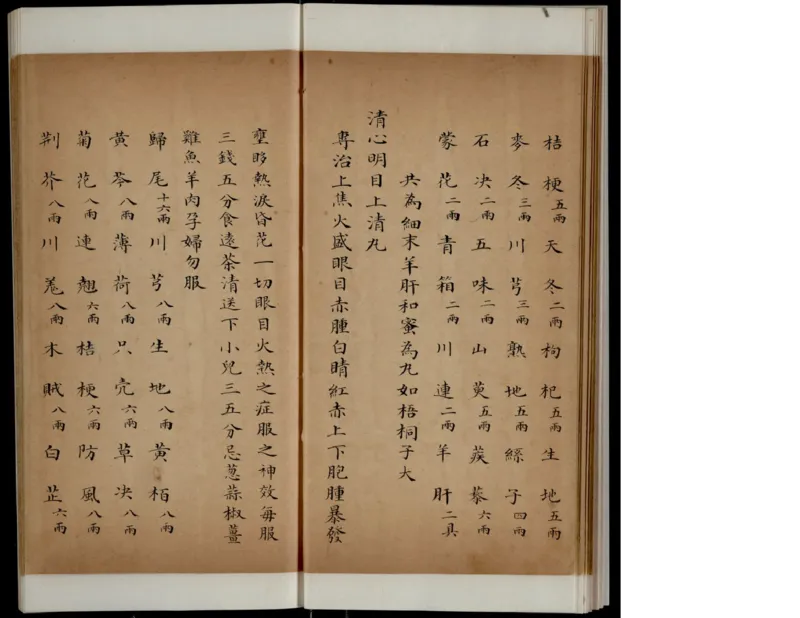 桔梗五兩天冬二兩枸杞五兩生地五兩
麥冬三兩川芎三兩熟地五兩絲子四兩
石决二兩五味二兩山萸五兩蒺藜六兩
蒙花二兩青箱二兩川連二兩羊肝二具
共為細末羊肝和蜜為丸如梧桐子大
清心明目上清丸
專治上焦火盛眼目赤腫白睛紅赤上下胞腫暴發
壅眵熱淚昏花一切眼目火熱之症服之神效每服
三錢五分食遠茶清送下小兒三五分忌葱蒜椒薑
雞魚羊肉孕婦勿服
歸尾十六兩川芎八兩生地八兩黃栢八兩
黃芩八兩薄荷八兩只壳六兩草决八兩
菊花八兩連翹六兩桔梗六兩防風八兩
荆芥八兩川羗八兩木賊八兩白芷六兩